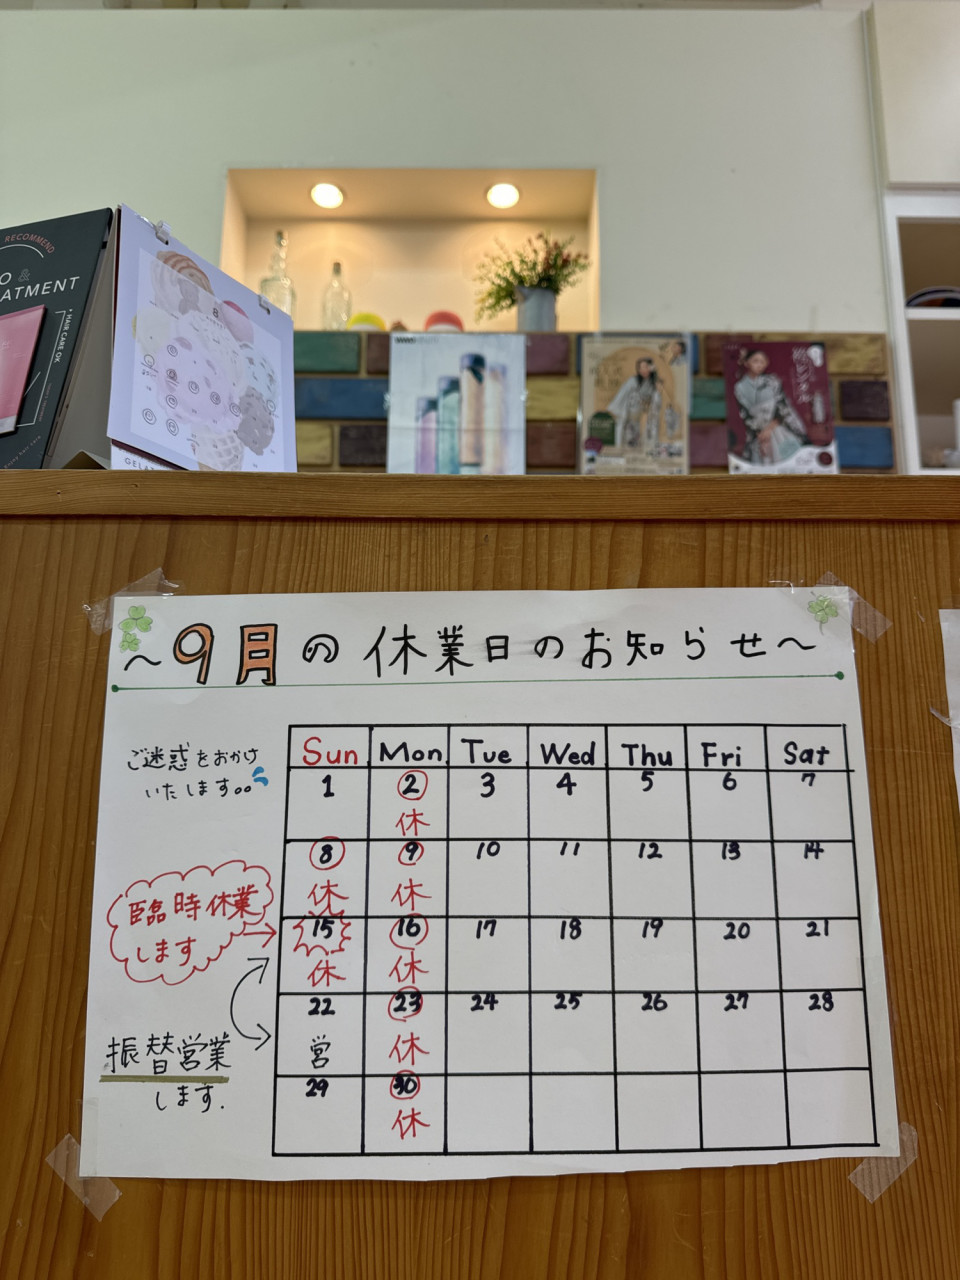 RECOMMEND
O &
ATMENT
HAIR CARE OK
8
GELAT
～9月の休業日のお知らせ～
ご迷惑をおかけ
いたします。。
臨時休業
します
振替営業
します.
Sun Mon Tue Wed Thu Fri Sat
1 2 3 4 5 6 7
休
8 9 10 11 12 13 14
休 休
15 16 17 18 19 20 21
休 休
22 23 24 25 26 27 28
営 休
29 30
休